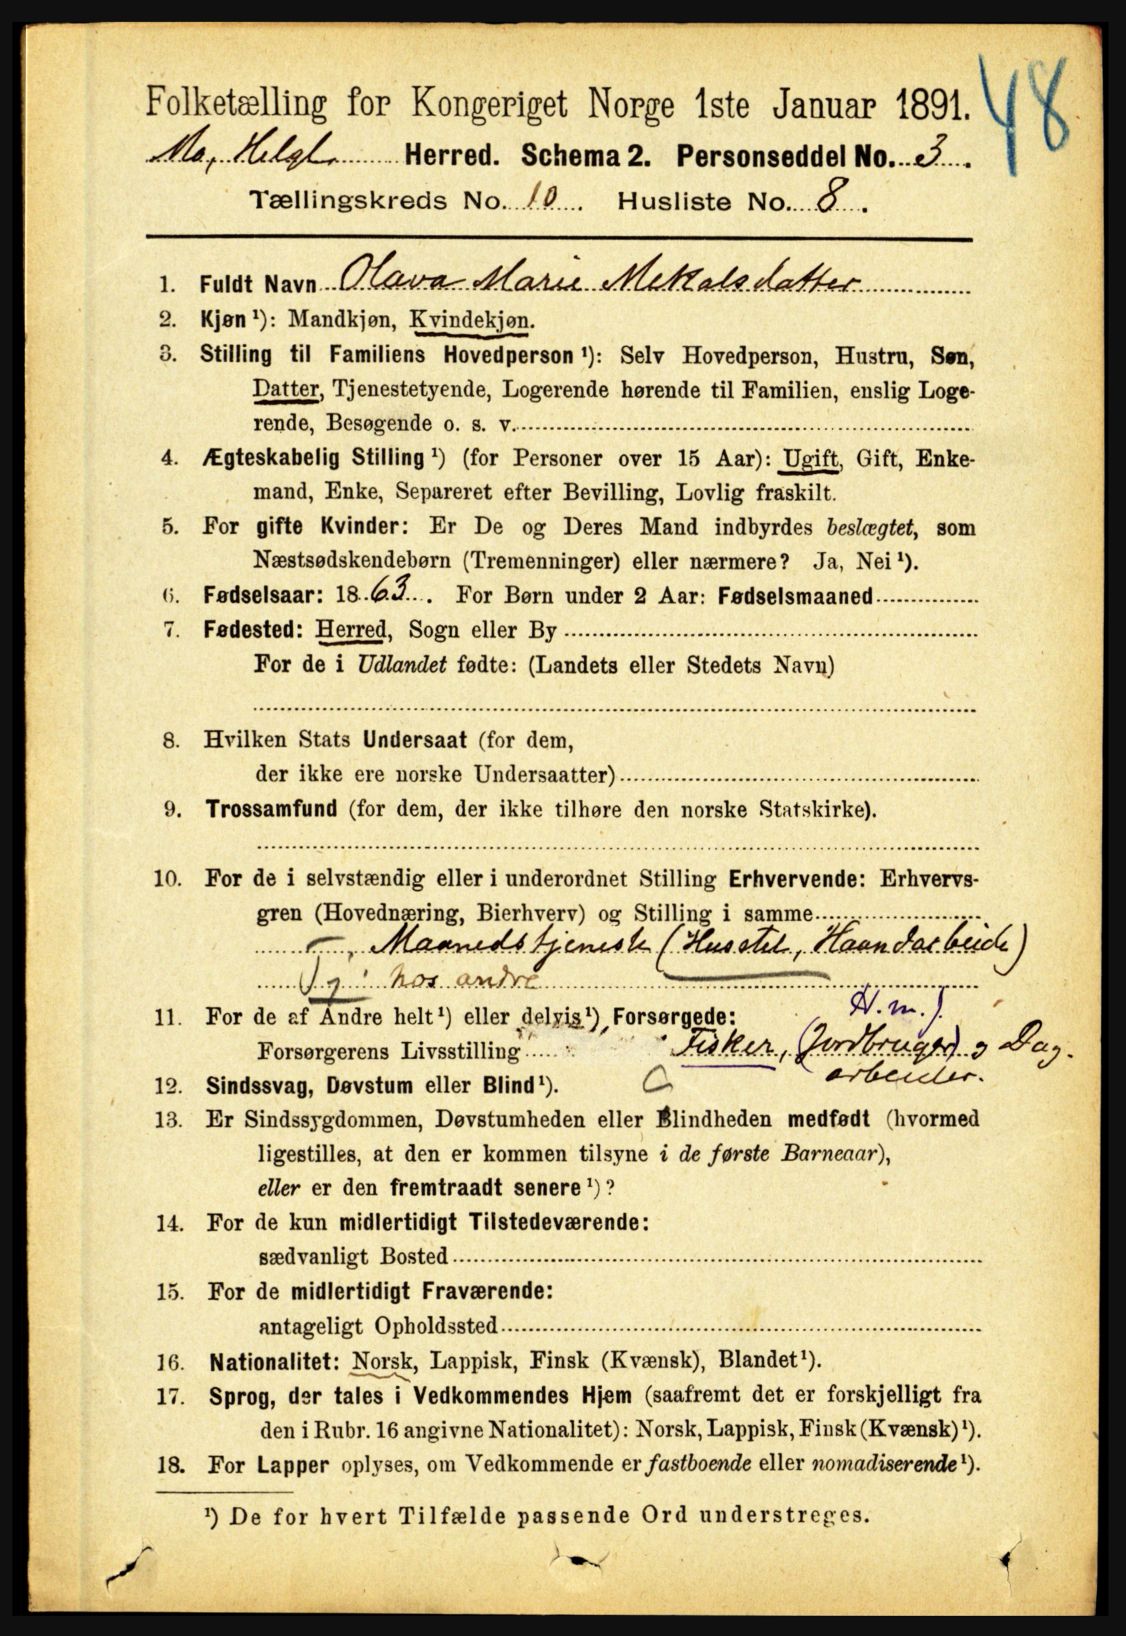 48
Folketælling for Kongeriget Norge 1ste Januar 1891.
Mo, Helgl. Herred. Schema 2. Personseddel No. 3.
Tællingskreds No. 10. Husliste No. 8.
1. Fuldt Navn Olava Marie Mekalsdatter
2. Kjøn ¹): Mandkjøn, Kvindekjøn.
3. Stilling til Familiens Hovedperson ¹): Selv Hovedperson, Hustru, Søn,
Datter, Tjenestetyende, Logerende hørende til Familien, enslig Loge-
rende, Besøgende o. s. v.
4. Ægteskabelig Stilling ¹) (for Personer over 15 Aar): Ugift, Gift, Enke-
mand, Enke, Separeret efter Bevilling, Lovlig fraskilt.
5. For gifte Kvinder: Er De og Deres Mand indbyrdes beslægtet, som
Næstsødskendebørn (Tremenninger) eller nærmere? Ja, Nei ¹).
6. Fødselsaar: 1863. For Børn under 2 Aar: Fødselsmaaned
7. Fødested: Herred, Sogn eller By
For de i Udlandet fødte: (Landets eller Stedets Navn)
8. Hvilken Stats Undersaat (for dem,
der ikke ere norske Undersaatter)
9. Trossamfund (for dem, der ikke tilhøre den norske Statskirke).
10. For de i selvstændig eller i underordnet Stilling Erhvervende: Erhvervs-
gren (Hovednæring, Bierhverv) og Stilling i samme
Maanedstjeneste (Husstel, Haandarbeide)
hos andre
11. For de af Andre helt ¹) eller delvis ¹) Forsørgede: H.m.)
Forsørgerens Livsstilling Fisker, (Jordbruger) og Dag-
arbeider.
12. Sindssvag, Døvstum eller Blind ¹).
13. Er Sindssygdommen, Døvstumheden eller Blindheden medfødt (hvormed
ligestilles, at den er kommen tilsyne i de første Barneaar),
eller er den fremtraadt senere ¹)?
14. For de kun midlertidigt Tilstedeværende:
sædvanligt Bosted
15. For de midlertidigt Fraværende:
antageligt Opholdssted
16. Nationalitet: Norsk, Lappisk, Finsk (Kvænsk), Blandet ¹).
17. Sprog, der tales i Vedkommendes Hjem (saafremt det er forskjelligt fra
den i Rubr. 16 angivne Nationalitet): Norsk, Lappisk, Finsk (Kvænsk) ¹).
18. For Lapper oplyses, om Vedkommende er fastboende eller nomadiserende ¹).
¹) De for hvert Tilfælde passende Ord understreges.